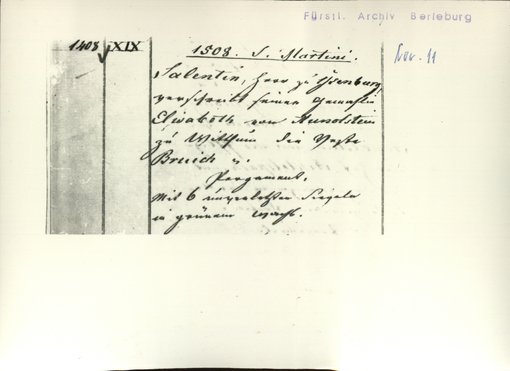 Fürstl. Archiv Berleburg
Nov. 11
1408 XIX
1508. S. Martini.
Salentin, Herr zu Isenburg,
verschreibt seiner Gemahlin
Elisabeth von Hunolstein
zu Witthum die Veste
Bruich
Pergament.
Mit 6 unverletzten Siegeln
in grünem Wachs.